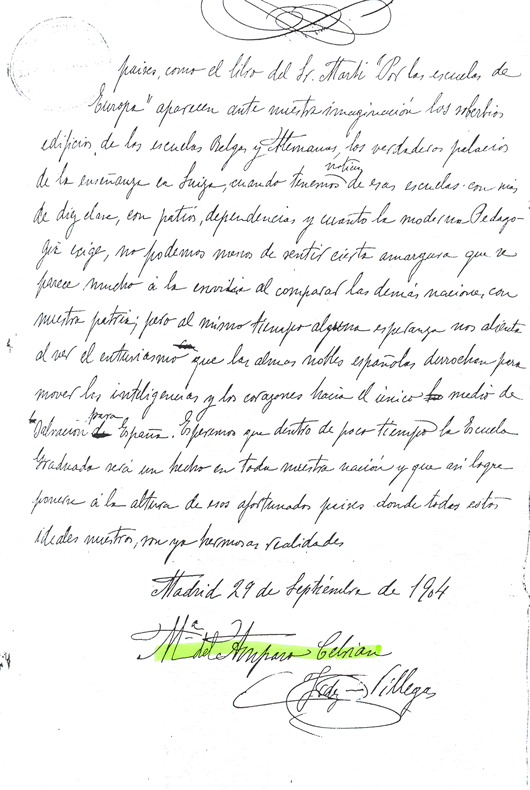 paises, como el libro del Sr. Martí "Por las escuelas de
Europa" aparecen ante nuestra imaginación los soberbios
edificios de las escuelas Belgas y Alemanas, los verdaderos palacios
de la enseñanza en Suiza, cuando tenemos noticias de esas escuelas con más
de diez clases, con patios, dependencias y cuanto la moderna Pedago-
gía exige, no podemos menos de sentir cierta amargura que se
parece mucho á la envidia al comparar las demás naciones con
nuestra patria; pero al mismo tiempo alguna esperanza nos alienta
al ver el entusiasmo que las almas nobles españolas derrochan para
mover las inteligencias y los corazones hacia el único medio de
salvación para España. Esperamos que dentro de poco tiempo la Escuela
Graduada será un hecho en toda nuestra nación y que así logre
ponerse á la altura de esos afortunados paises donde todos estos
ideales nuestros, son ya hermosas realidades
Madrid 29 de Septiembre de 1904
Mª del Amparo Cebrián
Frdz-Villegas